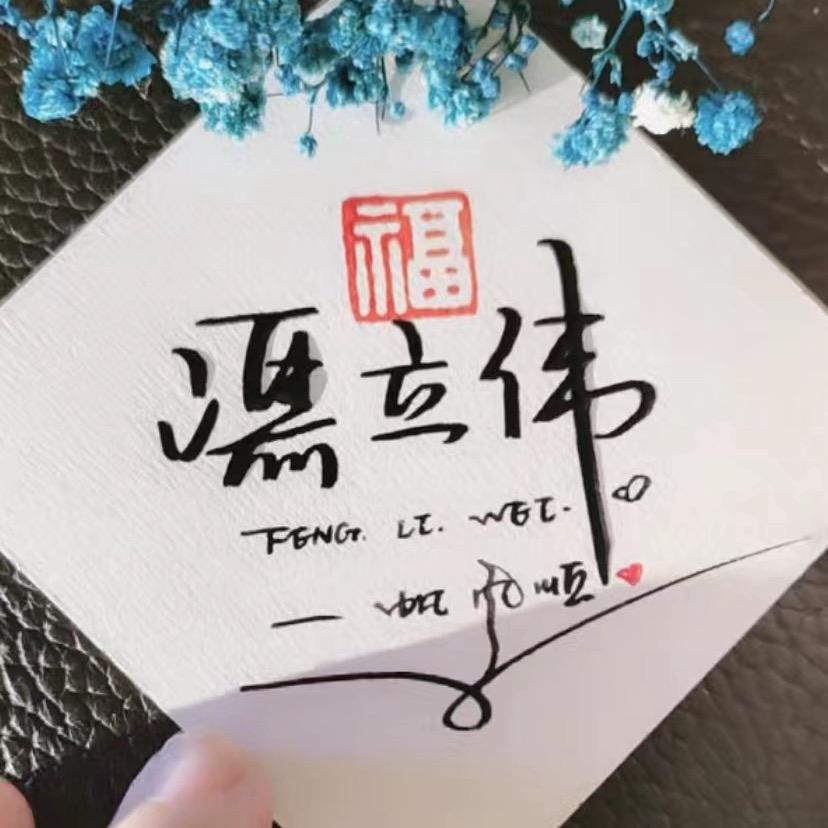 福
馮立伟
FENG. LI. WEI.
一帆风顺